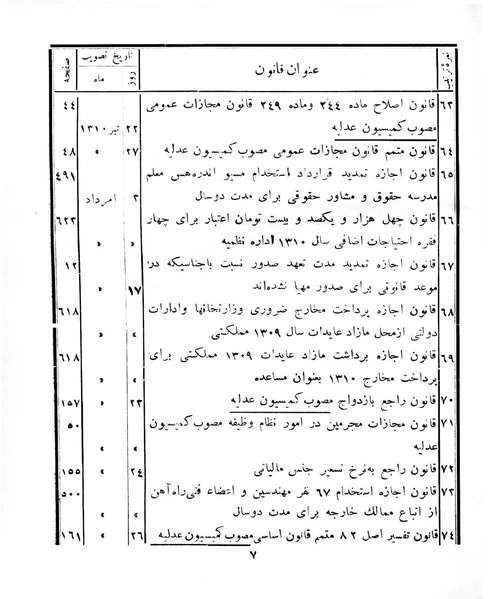 نمرهٔ ترتیب عنوان قانون تاریخ تصویب صفحه
روز ماه
۶۳ قانون اصلاح ماده ۲۴۴ وماده ۲۴۹ قانون مجازات عمومی ۴۴
مصوب کمیسیون عدلیه ۲۲ تیر ۱۳۱۰
۶۴ قانون متمم قانون مجازات عمومی مصوب کمیسیون عدلیه ۲۷ » ۴۸
۶۵ قانون اجازه تمدید قرارداد استخدام مسیو اندره‌هس معلم ۴۹۱
مدرسه حقوق و مشاور حقوقی برای مدت دوسال ۳ امرداد
۶۶ قانون چهل هزار و یکصد و بیست تومان اعتبار برای چهار ۶۲۳
فقره احتیاجات اضافی سال ۱۳۱۰ اداره نظمیه » »
۶۷ قانون اجازه تمدید مدت تعهد صدور نسبت باجناسیکه در ۱۲
موعد قانونی برای صدور مهیا نشده‌اند ۱۷ »
۶۸ قانون اجازه پرداخت مخارج ضروری وزارتخانها وادارات ۶۱۸
دولتی ازمحل مازاد عایدات سال ۱۳۰۹ مملکتی » »
۶۹ قانون اجازه برداشت مازاد عایدات ۱۳۰۹ مملکتی برای ۶۱۸
پرداخت مخارج ۱۳۱۰ بعنوان مساعده » »
۷۰ قانون راجع بازدواج مصوب کمیسیون عدلیه ۲۳ » ۱۵۷
۷۱ قانون مجازات مجرمین در امور نظام وظیفه مصوب کمیسیون ۵۰
عدلیه » »
۷۲ قانون راجع به‌نرخ تسعیر جنس مالیاتی ۲۴ » ۱۵۵
۷۳ قانون اجازه استخدام ۶۷ نفر مهندسین و اعضاء فنی راه‌آهن ۵۰۰
از اتباع ممالک خارجه برای مدت دوسال » »
۷۴ قانون تفسیر اصل ۸۲ متمم قانون اساسی مصوب کمیسیون عدلیه ۲۶ » ۱۶۱
۷